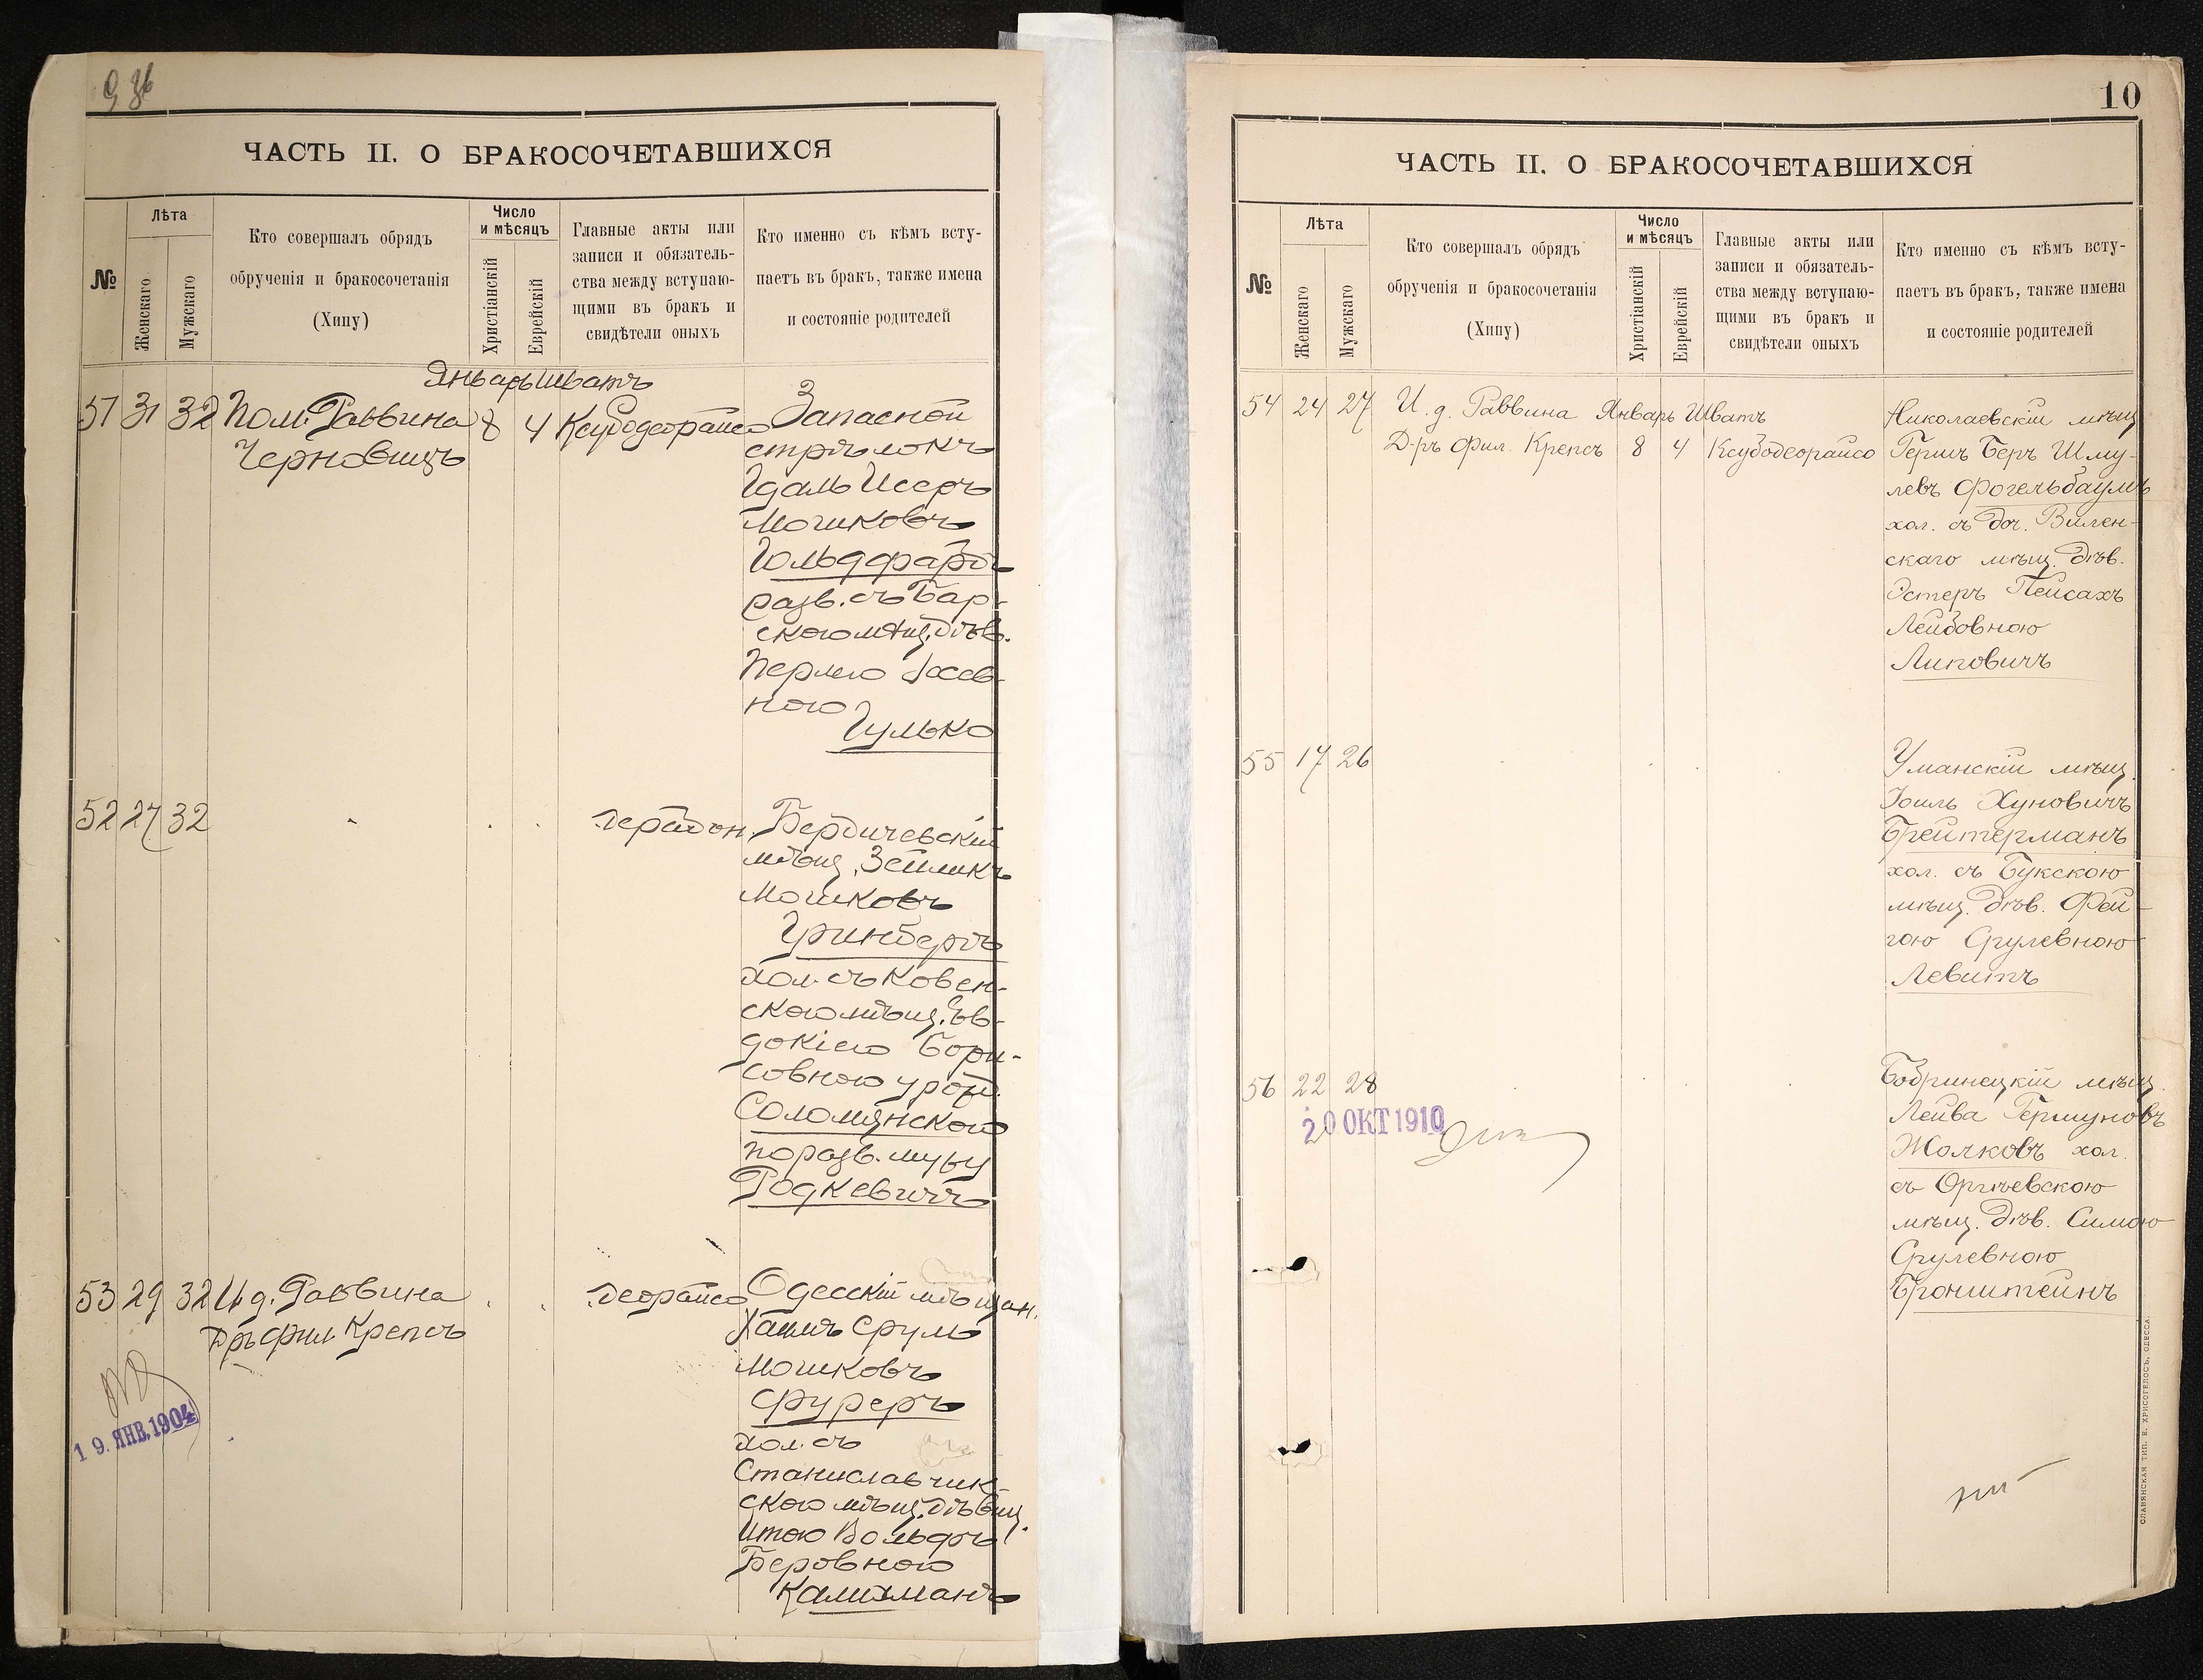 ЧАСТЬ II. О БРАКОСОЧЕТАВШИХСЯ
№
Лѣта
Женскаго
Мужскаго
Кто совершалъ обрядъ
обрученія и бракосочетанія
(Хипу)
Число
и мѣсяцъ
Христіанскій
Еврейскій
Главные акты или
записи и обязатель-
ства между вступаю-
щими въ бракъ и
свидѣтели оныхъ
Кто именно съ кѣмъ всту-
паетъ въ бракъ, также имена
и состояніе родителей
Январь Шватъ
51 31 32 Пом. Раввина 8 4 Ксубодеорайсо Запасной
Черновицъ
стрѣлокъ
Идаль Исеръ
Мошковъ
Гольдфарбъ
разв. съ Бар-
скою мѣщ. дѣв.
Перлею Іосев-
ною
Гулько
52 27 32 дерабон. Бердичевскій
мѣщ. Зейликъ
Мошковъ
Гринбергъ
хол. съ Ковен-
скою мѣщ. Ев-
докіею Бори-
совною урож.
Соломянскою
по разв. мужу
Родкевичъ
53 29 32 И. д. Раввина деорайсо Одесскій мѣщан.
Д-ръ фил. Крепсъ
Хаимъ Срулъ
Мошковъ
Фуреръ
хол. съ
Станиславчик-
скою мѣщ. дѣвиц.
Итою Вольфъ
Беровною
Калихманъ
19. ЯНВ. 1904
10
ЧАСТЬ II. О БРАКОСОЧЕТАВШИХСЯ
№
Лѣта
Женскаго
Мужскаго
Кто совершалъ обрядъ
обрученія и бракосочетанія
(Хипу)
Число
и мѣсяцъ
Христіанскій
Еврейскій
Главные акты или
записи и обязатель-
ства между вступаю-
щими въ бракъ и
свидѣтели оныхъ
Кто именно съ кѣмъ всту-
паетъ въ бракъ, также имена
и состояніе родителей
54 24 27 И. д. Раввина Январь Шватъ Николаевскій мѣщ.
Д-ръ фил. Крепсъ 8 4 Ксубодеорайсо Гершъ Беръ Шму-
левъ Фогельбаумъ
хол. съ доч. Вилен-
скаго мѣщ. дѣв.
Эстеръ Пейсахъ
Лейбовною
Липовичъ
55 17 26 Уманскій мѣщ.
Іоиль Хуновичъ
Брейтерманъ
хол. съ Букскою
мѣщ. дѣв. Фей-
гою Срулевною
Левитъ
56 22 28 Бобринецкій мѣщ.
Лейва Гершуновъ
Жолковъ хол.
съ Оргѣевскою
мѣщ. дѣв. Симою
Срулевною
Бронштейнъ
20 ОКТ 1910
СЛАВЯНСКАЯ ТИП. Е. ХРИСОГЕЛОСЪ, ОДЕССА.